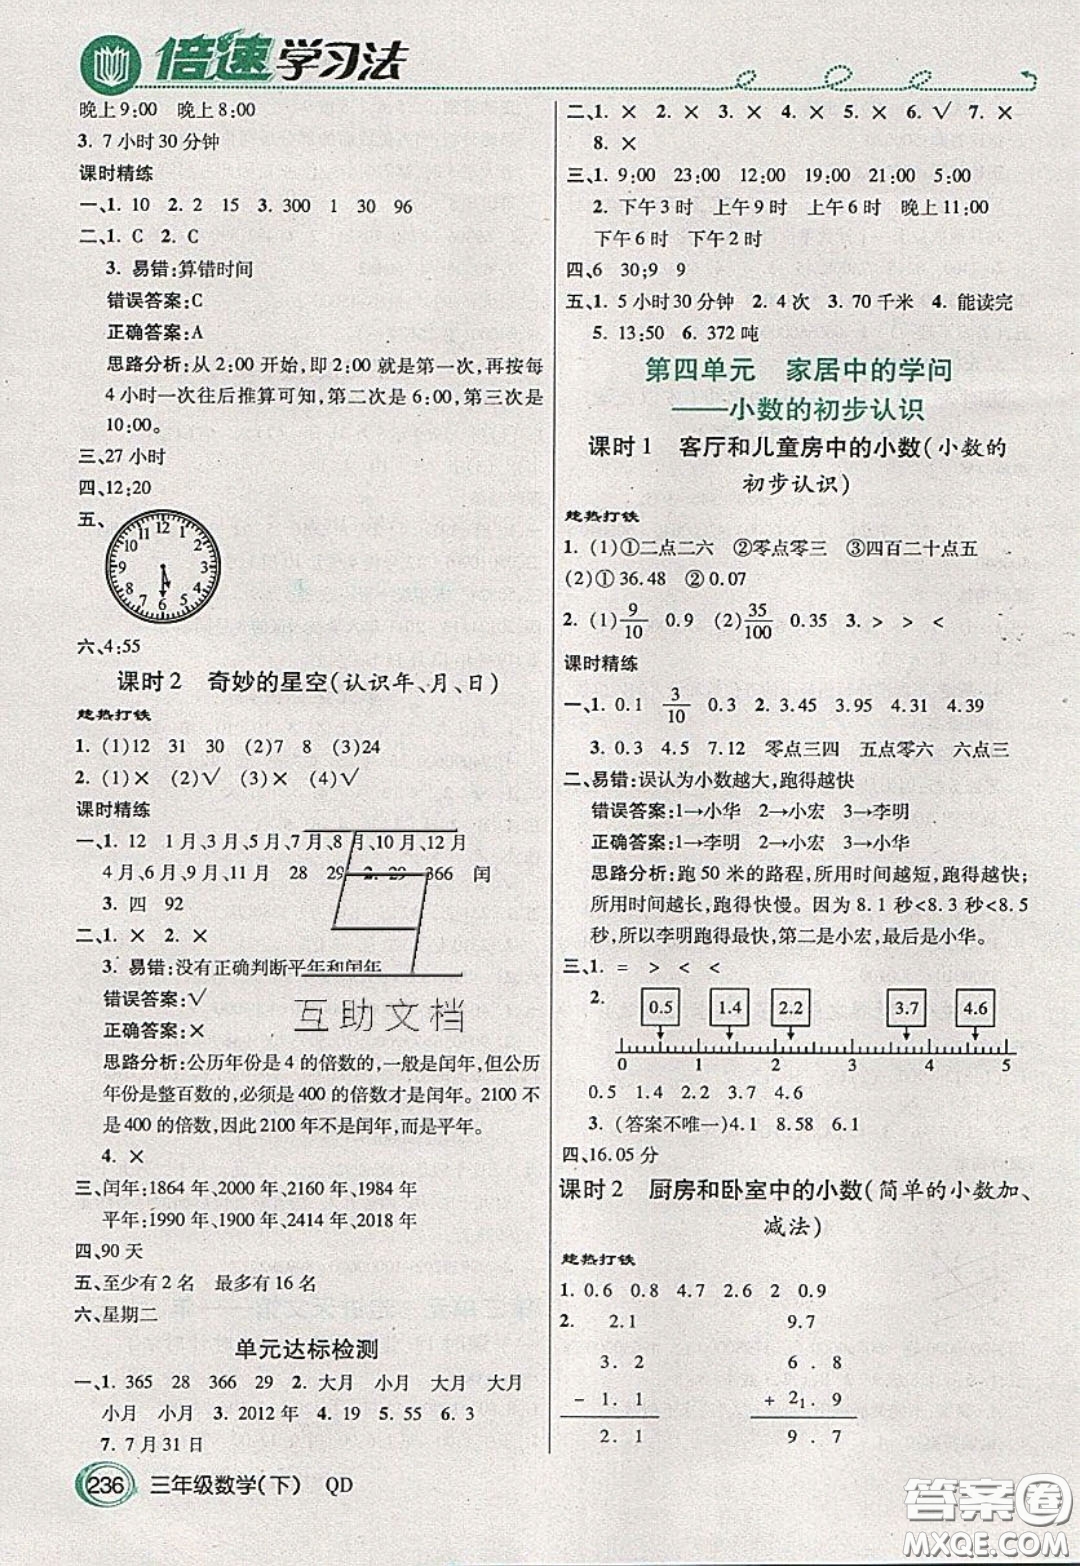 倍速学习法
晚上9:00 晚上8:00
3. 7小时30分钟
课时精练
一、1. 10 2. 2 15 3. 300 1 30 96
二、1. C 2. C
3. 易错:算错时间
错误答案:C
正确答案:A
思路分析:从2:00开始,即2:00就是第一次,再按每
4小时一次往后推算可知,第二次是6:00,第三次是
10:00。
三、27小时
四、12:20
五、
11 12 1
10 2
9 3
8 4
7 6 5
六、4:55
课时2 奇妙的星空(认识年、月、日)
趁热打铁
1. (1)12 31 30 (2)7 8 (3)24
2. (1)× (2)√ (3)× (4)√
课时精练
一、1. 12 1月、3月、5月、7月、8月、10月、12月
4月、6月、9月、11月 28 29 2. 29 366 闰
3. 四 92
二、1. × 2. ×
3. 易错:没有正确判断平年和闰年
错误答案:√
正确答案:×
思路分析:公历年份是4的倍数的,一般是闰年,但公历
年份是整百数的,必须是400的倍数才是闰年。2100不
是400的倍数,因此2100年不是闰年,而是平年。
4. ×
三、闰年:1864年、2000年、2160年、1984年
平年:1990年、1900年、2414年、2018年
四、90天
五、至少有2名 最多有16名
六、星期二
单元达标检测
一、1. 365 28 366 29 2. 大月 小月 大月 大月
小月 小月 3. 2012年 4. 19 5. 55 6. 3
7. 7月31日
236 三年级数学(下) QD
二、1. × 2. × 3. × 4. × 5. × 6. √ 7. ×
8. ×
三、1. 9:00 23:00 12:00 19:00 21:00 5:00
2. 下午3时 上午9时 上午6时 晚上11:00
下午6时 下午2时
四、6 30;9 9
五、1. 5小时30分钟 2. 4次 3. 70千米 4. 能读完
5. 13:50 6. 372吨
第四单元 家居中的学问
——小数的初步认识
课时1 客厅和儿童房中的小数(小数的
初步认识)
趁热打铁
1. (1)①二点二六 ②零点零三 ③四百二十点五
(2)①36.48 ②0.07
2. (1)9/10 0.9 (2)35/100 0.35 3. > > <
课时精练
一、1. 0.1 3/10 0.3 2. 3.45 3.95 4.31 4.39
3. 0.3 4.5 7.12 零点三四 五点零六 六点三
二、易错:误认为小数越大,跑得越快
错误答案:1→小华 2→小宏 3→李明
正确答案:1→李明 2→小宏 3→小华
思路分析:跑50米的路程,所用时间越短,跑得越快;
所用时间越长,跑得越慢。因为8.1秒<8.3秒<8.5
秒,所以李明跑得最快,第二是小宏,最后是小华。
三、1. = > < <
2. 0.5 1.4 2.2 3.7 4.6
0 1 2 3 4 5
0.5 1.4 2.2 3.7 4.6
3. (答案不唯一)4.1 8.58 6.1
四、16.05分
课时2 厨房和卧室中的小数(简单的小数加、
减法)
趁热打铁
1. 0.6 0.8 4.7 2.6 2 0.9
2. 2.1 9.7
3.2 6.8
- 1.1 + 2₁.9
2.1 9.7
互助文档
答案卷
MXQE.COM